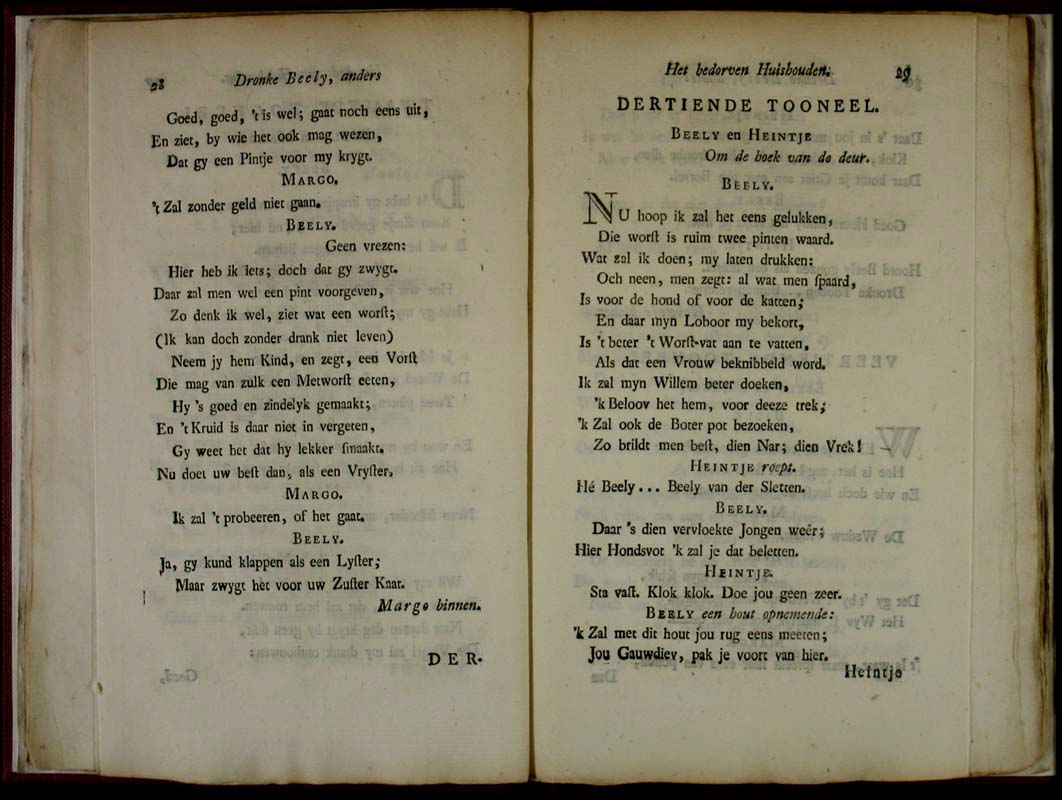 28 Dronke Beely, anders
Goed, goed, 't is wel; gaat noch eens uit,
En ziet, by wie het ook mag wezen,
Dat gy een Pintje voor my krygt.
MARGO.
't Zal zonder geld niet gaan.
BEELY.
Geen vrezen:
Hier heb ik iets; doch dat gy zwygt.
Daar zal men wel een pint voorgeven,
Zo denk ik wel, ziet wat een worſt;
(Ik kan doch zonder drank niet leven)
Neem jy hem Kind, en zegt, een Vorſt
Die mag van zulk een Metworſt eeten,
Hy 's goed en zindelyk gemaakt;
En 't Kruid is daar niet in vergeten,
Gy weet het dat hy lekker ſmaakt.
Nu doet uw beſt dan, als een Vryſter.
MARGO.
Ik zal 't probeeren, of het gaat.
BEELY.
Ja, gy kund klappen als een Lyſter;
Maar zwygt het voor uw Zuſter Kaat.
Margo binnen.
DER-
Het bedorven Huishouden. 29
DERTIENDE TOONEEL.
BEELY en HEINTJE
Om de hoek van de deur.
BEELY.
NU hoop ik zal het eens gelukken,
Die worſt is ruim twee pinten waard.
Wat zal ik doen; my laten drukken:
Och neen, men zegt: al wat men ſpaard,
Is voor de hond of voor de katten;
En daar myn Loboor my bekort,
Is 't beter 't Worſt-vat aan te vatten,
Als dat een Vrouw beknibbeld word.
Ik zal myn Willem beter doeken,
'k Beloov het hem, voor deeze trek;
'k Zal ook de Boter pot bezoeken,
Zo brildt men beſt, dien Nar; dien Vrek!
HEINTJE roept.
Hé Beely... Beely van der Sletten.
BEELY.
Daar 's dien vervloekte Jongen weêr;
Hier Hondsvot 'k zal je dat beletten.
HEINTJE.
Sta vaſt. Klok klok. Doe jou geen zeer.
BEELY een hout opnemende:
'k Zal met dit hout jou rug eens meeten;
Jou Gauwdiev, pak je voort van hier.
Heintje